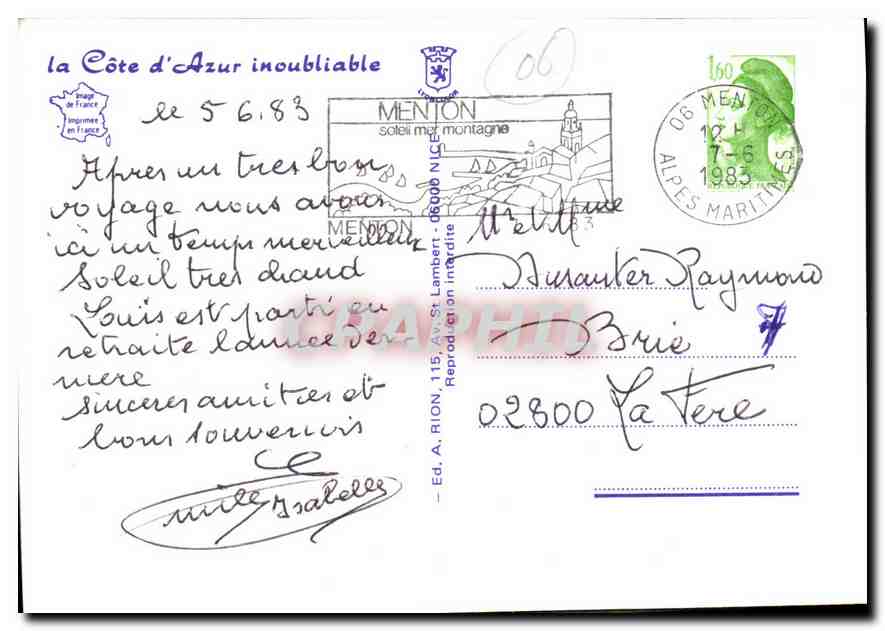 la Côte d'Azur inoubliable
Image
de France
Imprimée
en France
LYONCOLOR
06
le 5 6.83
Apres un tres bon
voyage nous avons
ici un temps merveilleux
soleil tres chaud
Louis est parti en
retraite l'annee der-
niere
sinceres amities et
bons souvenirs
Isabelle
MENTON
soleil mer montagne
MENTON
1,60
06 MENTON
12 H
7-6
1983
ALPES MARITIMES
Mr et Mme
Raymond
Brie
02800 La Fere
— Ed. A. RION, 115, Av. St Lambert - 06000 NICE —
Reproduction interdite
CPAPHIL